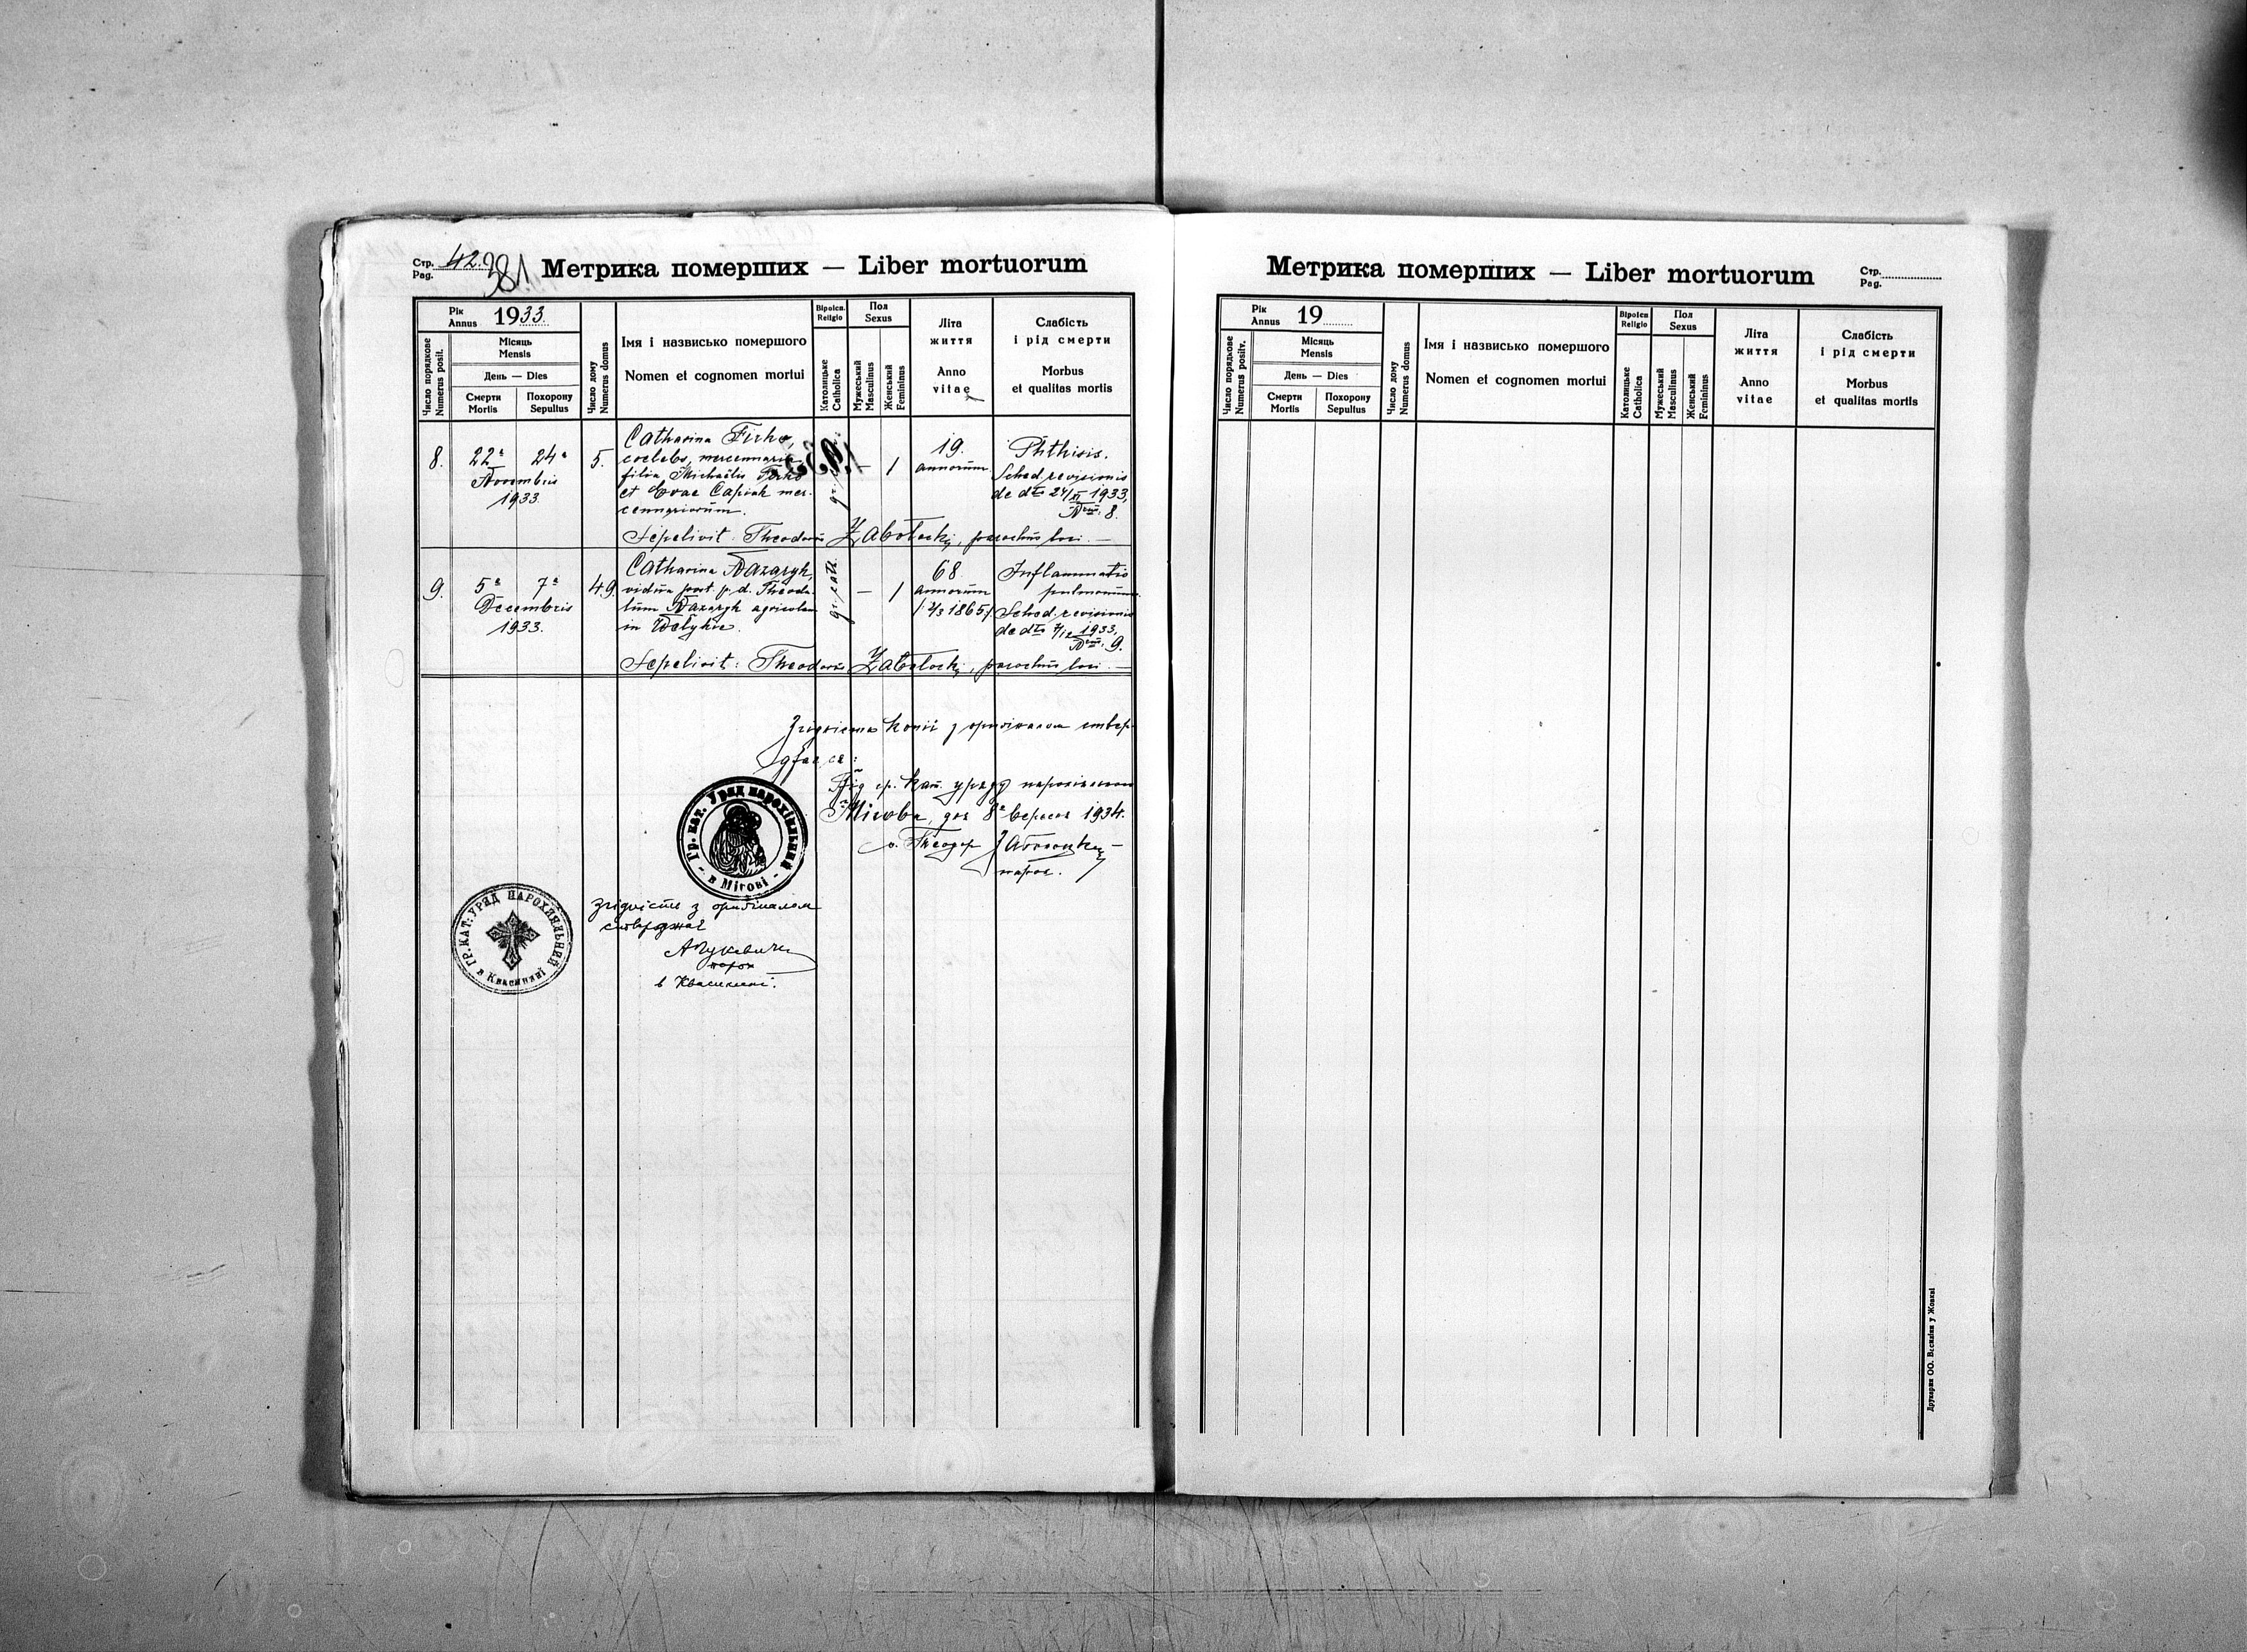 Стр. Pag. 42. 381
Метрика померших — Liber mortuorum
Рік Annus 1933.
Місяць Mensis
День — Dies
Число порядкове Numerus posit.
Смерти Mortis
Похорону Sepultus
Число дому Numerus domus
Імя і назвисько помершого
Nomen et cognomen mortui
Віроісп. Religio
Католицьке Catholica
Пол Sexus
Мужеський Masculinus
Женський Femininus
Літа життя
Anno vitae
Слабість і рід смерти
Morbus et qualitas mortis
8. 22ª 24ª
Novembris
1933.
5.
Catharina Firko,
coelebs, mercennaria
filia Michaëlis Firko
et Evae Capiak mer-
cennariorum.
1933
— 1
19.
annorum
Phthisis.
Sched. revisionis
de dto 24/XI 1933,
Nrm. 8.
Sepelivit: Theodorus Zabołockij, parochus loci. —
9. 5ª 7ª
Decembris
1933.
49.
Catharina Nazaryk,
vidua post p. d. Theodo-
rum Nazaryk agricolam
in
gr. cath.
— 1
68.
annorum
/ 2/3 1865 /
Inflammatio
pulmonum.
Sched. revisionis
de dto 7/12 1933,
Nrm. 9.
Sepelivit: Theodorus Zabołockij, parochus loci. —
Згідність копії з оригіналом ствер-
джає ся:
Від гр. кат. уряду парохіяльного
Мігова, дня 8ª вересня 1934.
о. Теодор Заболоцкий
парох.
Гр. кат. Уряд парохіяльний
- в Мігові -
ГР. КАТ. УРЯД ПАРОХІЯЛЬНИЙ
в Квасенині
Згідність з оригіналом
стверджає
парох
в Квасенині.
Метрика померших — Liber mortuorum
Стр. Pag.
Рік Annus 19
Місяць Mensis
День — Dies
Число порядкове Numerus positv.
Смерти Mortis
Похорону Sepultus
Число дому Numerus domus
Імя і назвисько помершого
Nomen et cognomen mortui
Віроісп. Religio
Католицьке Catholica
Пол Sexus
Мужеський Masculinus
Женський Femininus
Літа життя
Anno vitae
Слабість і рід смерти
Morbus et qualitas mortis
Друкарня ОО. Василіян у Жовкві